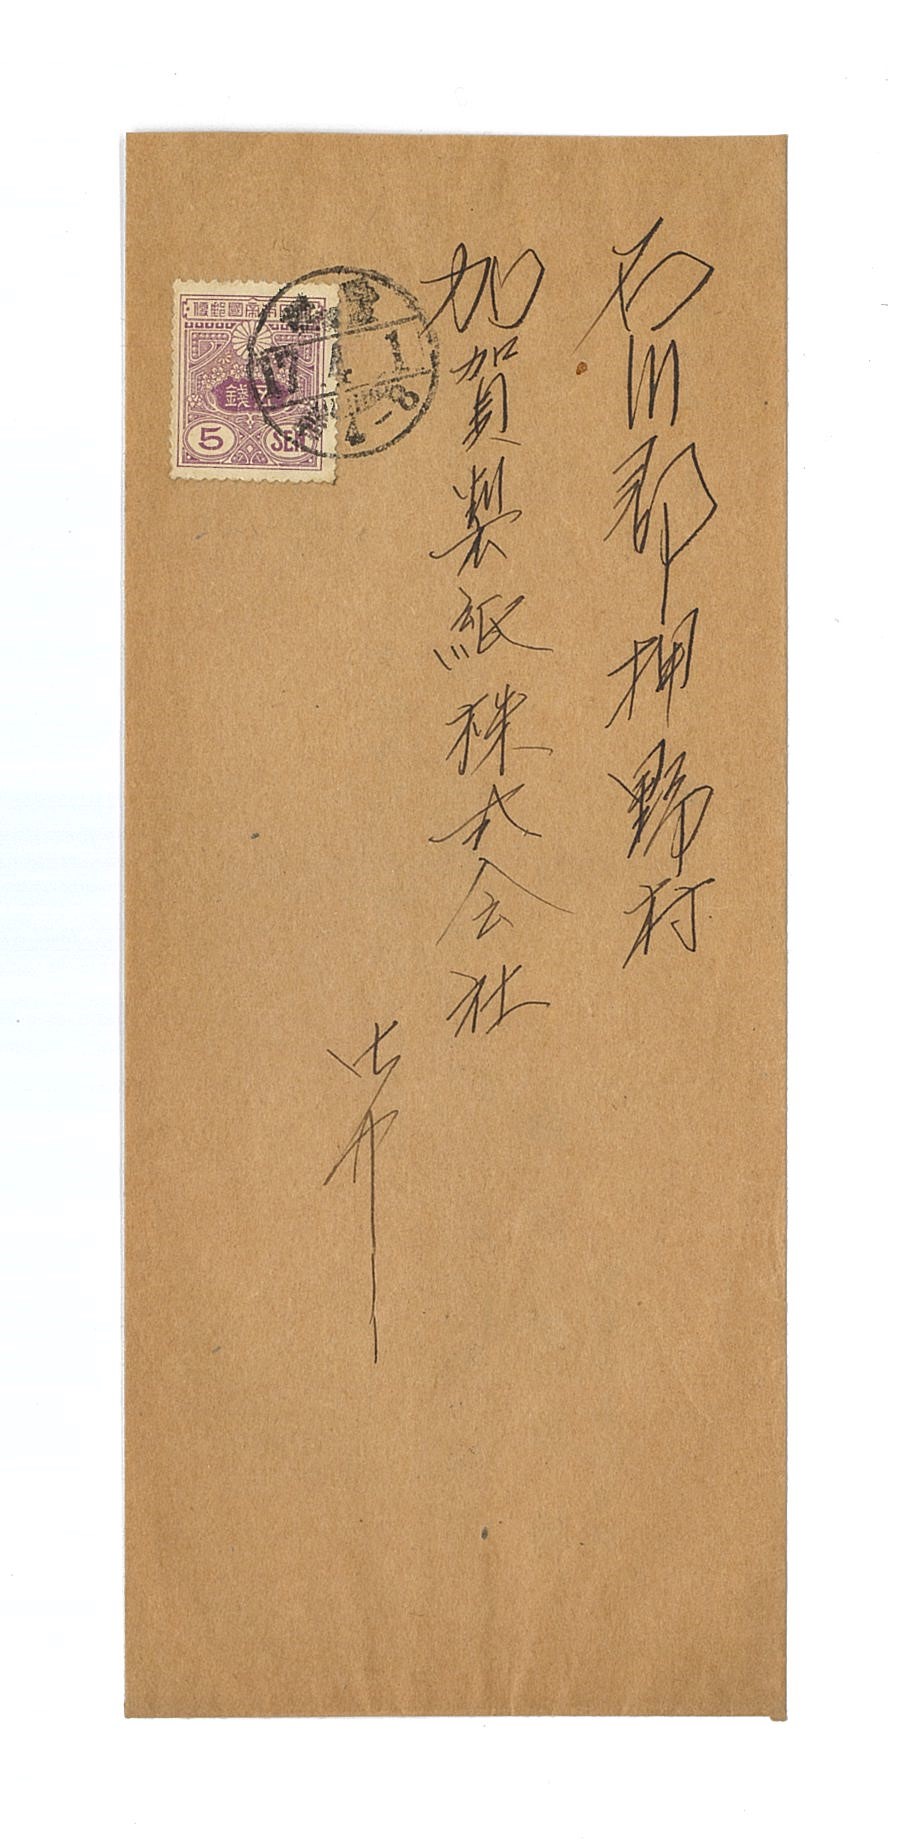 石川郡押野村
加賀製紙株式会社
御中
大日本帝國郵便
五錢
5 SEN
17.4.1